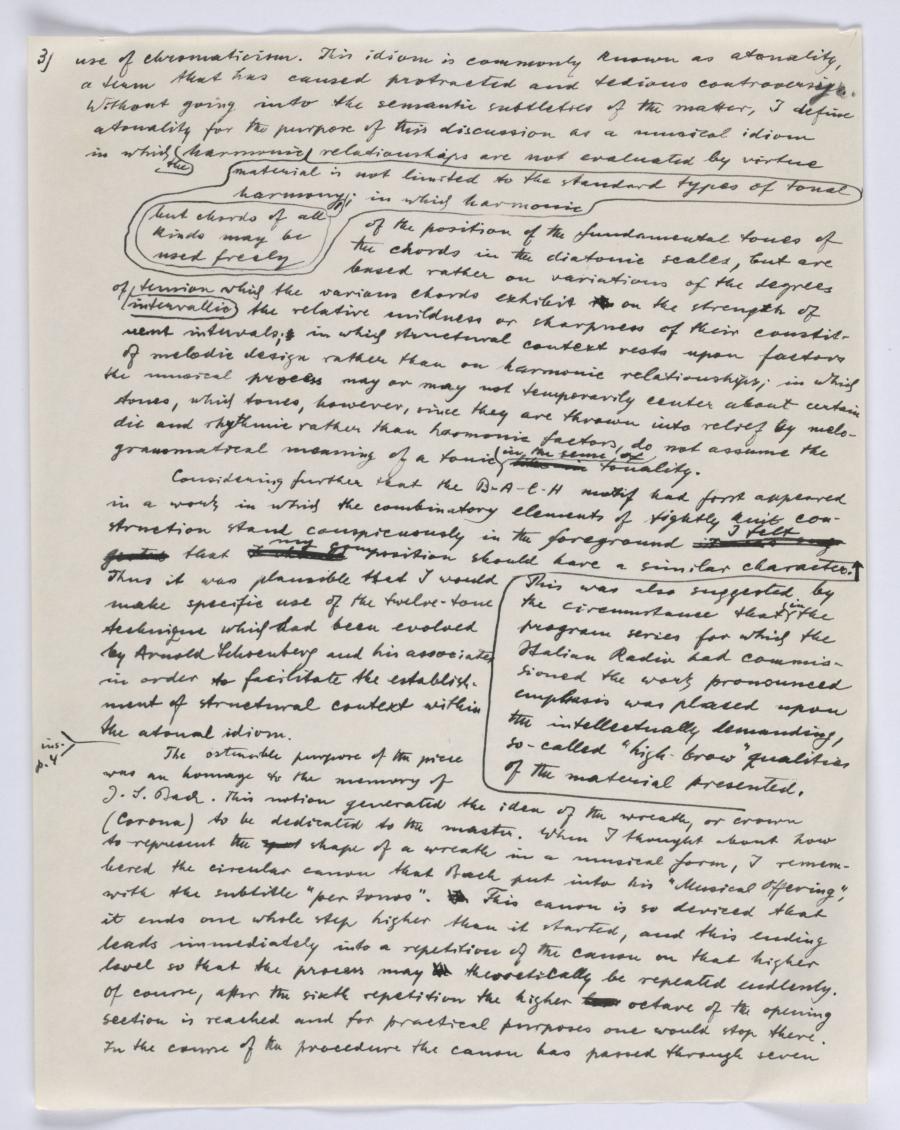 3)
use of chromaticism. This idiom is commonly known as atonality,
a term that has caused protracted and tedious controversy.
Without going into the semantic subtleties of the matter, I define
atonality for the purpose of this discussion as a musical idiom
in which (harmonic) relationships are not evaluated by virtue
the
material is not limited to the standard types of tonal
harmony; in which harmonic
but chords of all
kinds may be
used freely
of the position of the fundamental tones of
the chords in the diatonic scales, but are
based rather on variations of the degrees
of tension which the various chords exhibit on the strength of
(intervallic) the relative mildness or sharpness of their constit-
uent intervals; in which structural context rests upon factors
of melodic design rather than on harmonic relationships; in which
the musical process may or may not temporarily center about certain
tones, which tones, however, since they are thrown into relief by melo-
dic and rhythmic rather than harmonic factors, do not assume the
grammatical meaning of a tonic in the sense of tonality.
Considering further that the B-A-C-H motif had first appeared
in a work in which the combinatory elements of tightly knit con-
struction stand conspicuously in the foreground I felt
that my composition should have a similar character.
Thus it was plausible that I would
make specific use of the twelve-tone
technique which had been evolved
by Arnold Schoenberg and his associates
in order to facilitate the establish-
ment of structural context within
the atonal idiom.
This was also suggested by
the circumstance that in the
program series for which the
Italian Radio had commis-
sioned the work pronounced
emphasis was placed upon
the intellectually demanding,
so-called "high-brow" qualities
of the material presented.
ins.
p. 4
The ostensible purpose of the piece
was an homage to the memory of
J. S. Bach. This notion generated the idea of the wreath, or crown
(Corona) to be dedicated to the master. When I thought about how
to represent the shape of a wreath in a musical form, I remem-
bered the circular canon that Bach put into his "Musical Offering",
with the subtitle "per tonos". This canon is so deviced that
it ends one whole step higher than it started, and this ending
leads immediately into a repetition of the canon on that higher
level so that the process may theoretically be repeated endlessly.
Of course, after the sixth repetition the higher octave of the opening
section is reached and for practical purposes one would stop there.
In the course of the procedure the canon has passed through seven